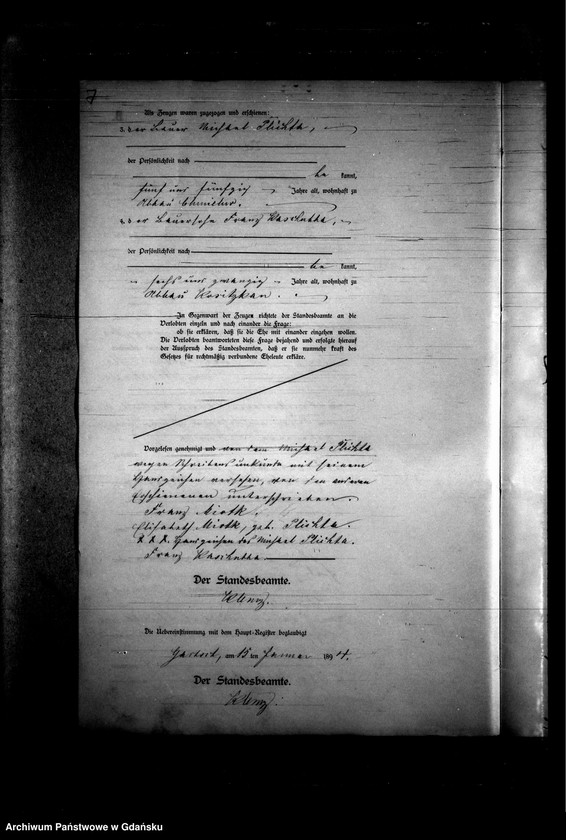 Als Zeugen waren zugezogen und erschienen:
3. der Bauer Michael Plichta,
der Persönlichkeit nach
be kannt,
fünf und fünfzig Jahre alt, wohnhaft zu
Abbau
4. der Bauersohn Franz
der Persönlichkeit nach
be kannt,
sechs und zwanzig Jahre alt, wohnhaft zu
Abbau
In Gegenwart der Zeugen richtete der Standesbeamte an die
Verlobten einzeln und nach einander die Frage:
ob sie erklären, daß sie die Ehe mit einander eingehen wollen.
Die Verlobten beantworteten diese Frage bejahend und erfolgte hierauf
der Ausspruch des Standesbeamten, daß er sie nunmehr kraft des
Gesetzes für rechtmäßig verbundene Eheleute erkläre.
Vorgelesen, genehmigt und von dem Michael Plichta
wegen Schreibensunkunde mit seinem
Handzeichen versehen, von den anderen
Erschienenen unterschrieben.
Franz Miotk.
Elisabeth Miotk, geb. Plichta.
X X X Handzeichen des Michael Plichta.
Franz
Der Standesbeamte.
Die Uebereinstimmung mit dem Haupt-Register beglaubigt
am 15 ten Januar 1894.
Der Standesbeamte.
Archiwum Państwowe w Gdańsku